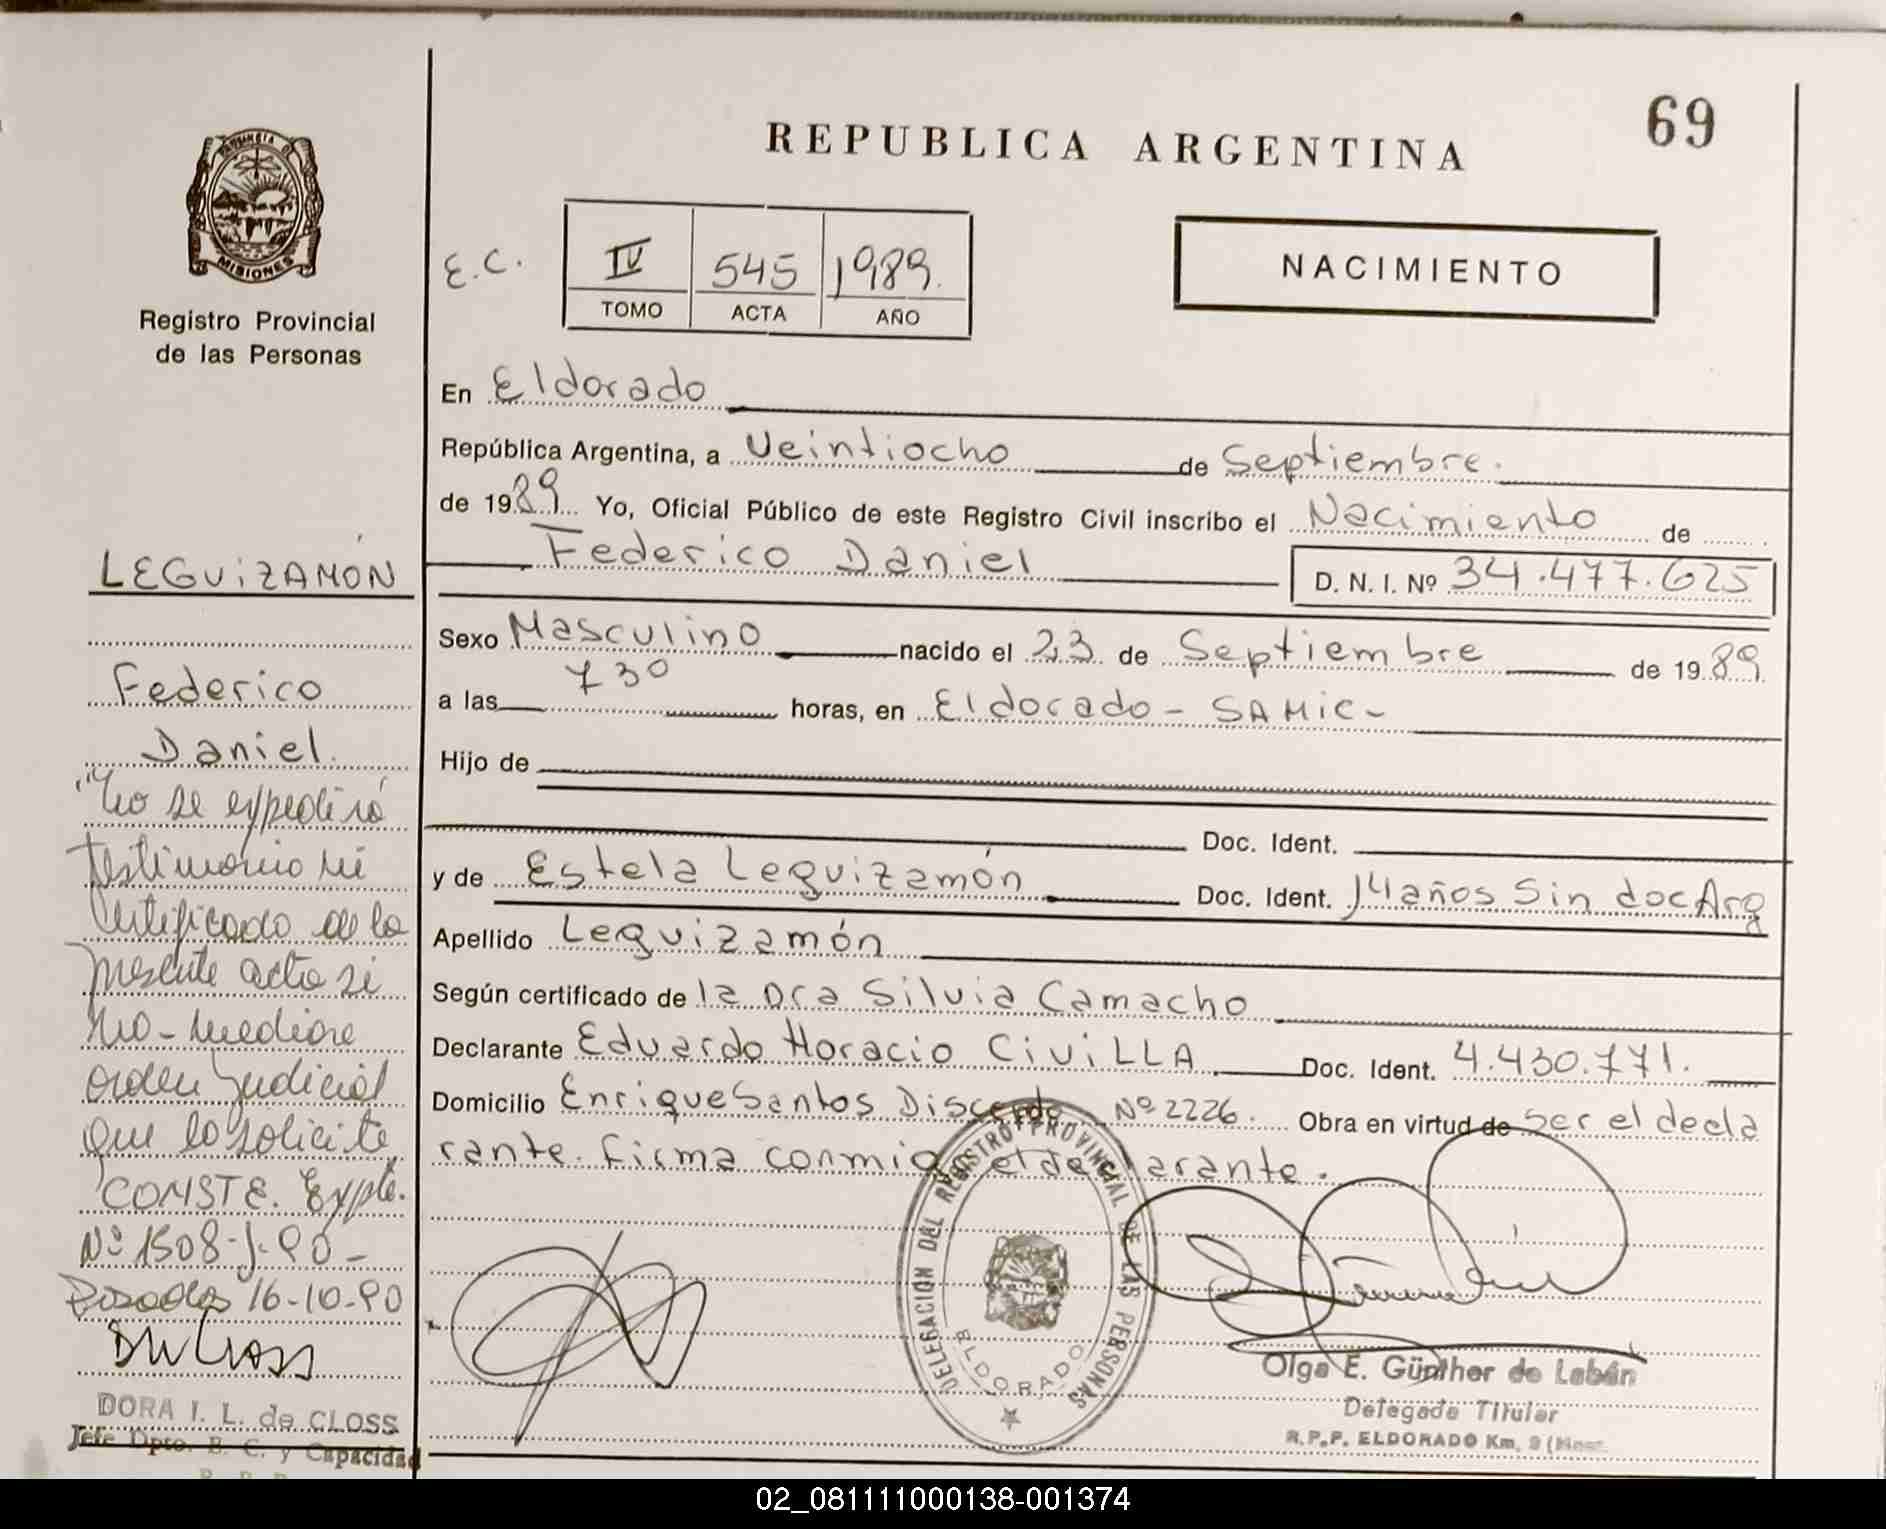 69
REPUBLICA ARGENTINA
MISIONES
Registro Provincial
de las Personas
E.C.
IV 545 1989.
TOMO ACTA AÑO
NACIMIENTO
En Eldorado
República Argentina, a Veintiocho de Septiembre.
de 1989 Yo, Oficial Público de este Registro Civil inscribo el Nacimiento de
Federico Daniel D. N. I. Nº 34.477.625
Sexo Masculino nacido el 23 de Septiembre de 1989
a las 730 horas, en Eldorado - SAMic-
Hijo de
Doc. Ident.
y de Estela Leguizamón Doc. Ident. 14 años Sin doc Arg
Apellido Leguizamón
Según certificado de la Dra Silvia Camacho
Declarante Eduardo Horacio CiViLLA Doc. Ident. 4.430.771.
Domicilio Enrique Santos Discepolo Nº 2226. Obra en virtud de Ser el decla
rante. Firma conmigo el declarante.
LEGUiZAMÓN
Federico
Daniel.
"No se expedirá
testimonio ni
certificado de la
presente acta si
no-mediare
orden Judicial
que lo solicite
CONSTE. Expte.
Nº 1508-J-90-
Posadas 16-10-90
DORA I. L. de CLOSS
Jefe Dpto. E. C. y Capacidad
DELEGACION DEL REGISTRO PROVINCIAL DE LAS PERSONAS
ELDORADO
Olga E. Günther de Labán
Delegada Titular
R.P.P. ELDORADO Km. 9 (Mnes.
02_081111000138-001374